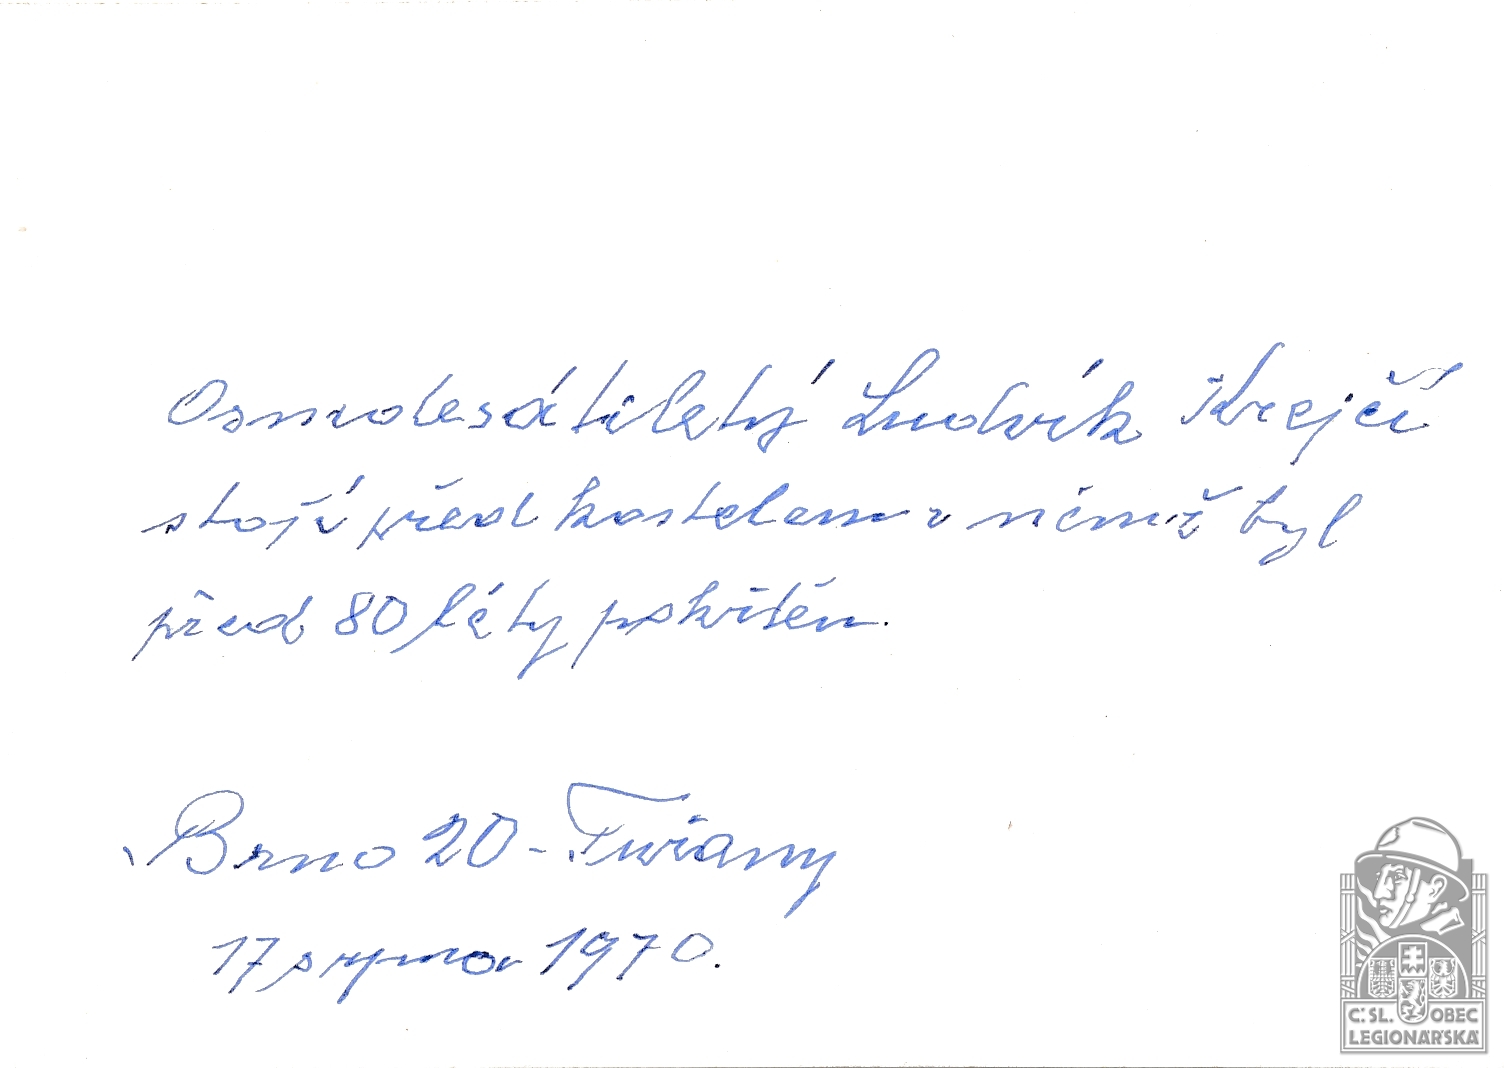 Osmdesátiletý Ludvík Krejčí
stojí před kostelem v němž byl
před 80 léty pokřtěn.
Brno 20 - Tuřany
17 srpna 1970.
Č. SL. OBEC
LEGIONÁŘSKÁ